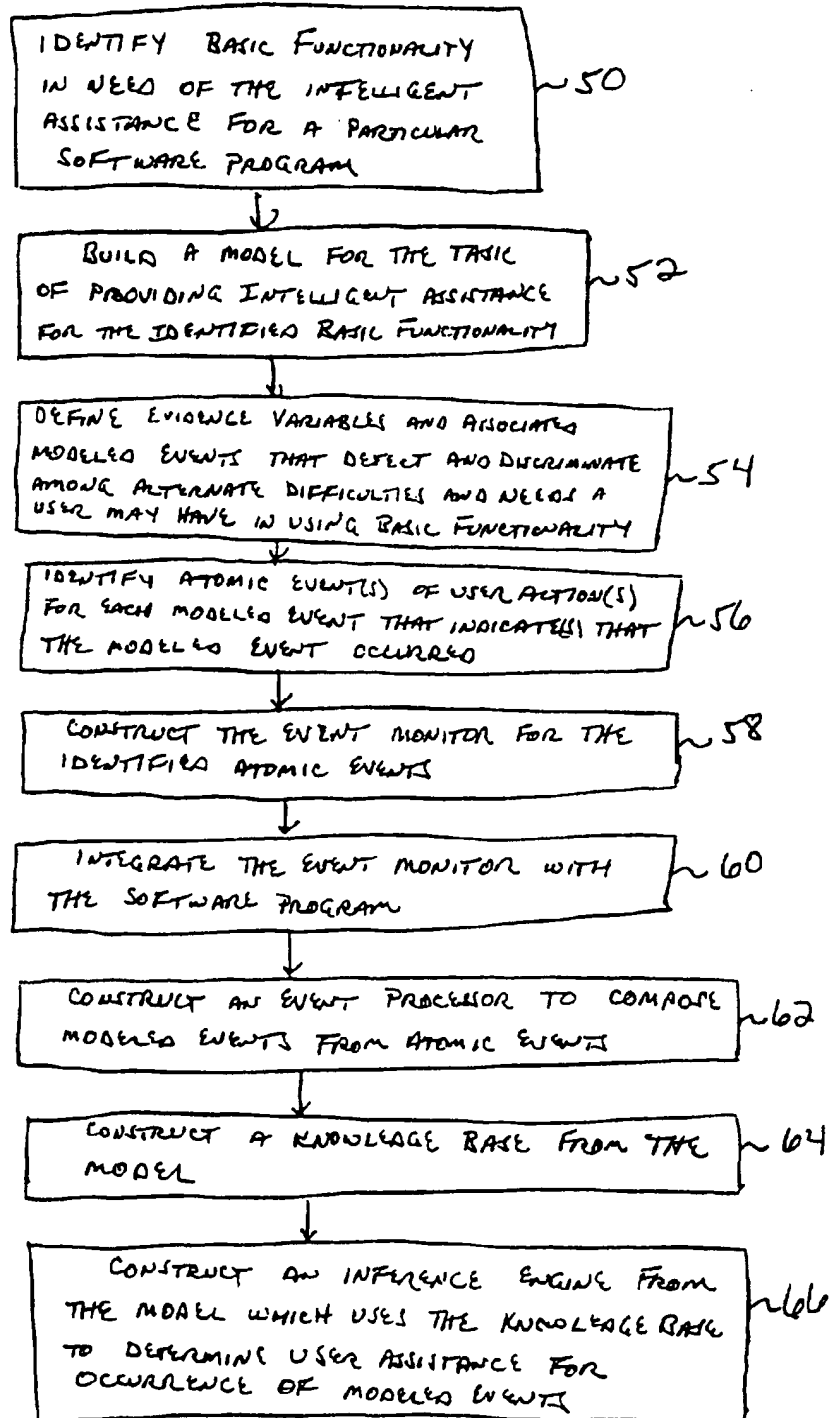 IDENTIFY BASIC FUNCTIONALITY
IN NEED OF THE INTELLIGENT
ASSISTANCE FOR A PARTICULAR
SOFTWARE PROGRAM
50
BUILD A MODEL FOR THE TASK
OF PROVIDING INTELLIGENT ASSISTANCE
FOR THE IDENTIFIED BASIC FUNCTIONALITY
52
DEFINE EVIDENCE VARIABLES AND ASSOCIATED
MODELED EVENTS THAT DETECT AND DISCRIMINATE
AMONG ALTERNATE DIFFICULTIES AND NEEDS A
USER MAY HAVE IN USING BASIC FUNCTIONALITY
54
IDENTIFY ATOMIC EVENT(S) OF USER ACTION(S)
FOR EACH MODELED EVENT THAT INDICATE(S) THAT
THE MODELED EVENT OCCURRED
56
CONSTRUCT THE EVENT MONITOR FOR THE
IDENTIFIED ATOMIC EVENTS
58
INTEGRATE THE EVENT MONITOR WITH
THE SOFTWARE PROGRAM
60
CONSTRUCT AN EVENT PROCESSOR TO COMPOSE
MODELED EVENTS FROM ATOMIC EVENTS
62
CONSTRUCT A KNOWLEDGE BASE FROM THE
MODEL
64
CONSTRUCT AN INFERENCE ENGINE FROM
THE MODEL WHICH USES THE KNOWLEDGE BASE
TO DETERMINE USER ASSISTANCE FOR
OCCURRENCE OF MODELED EVENTS
66